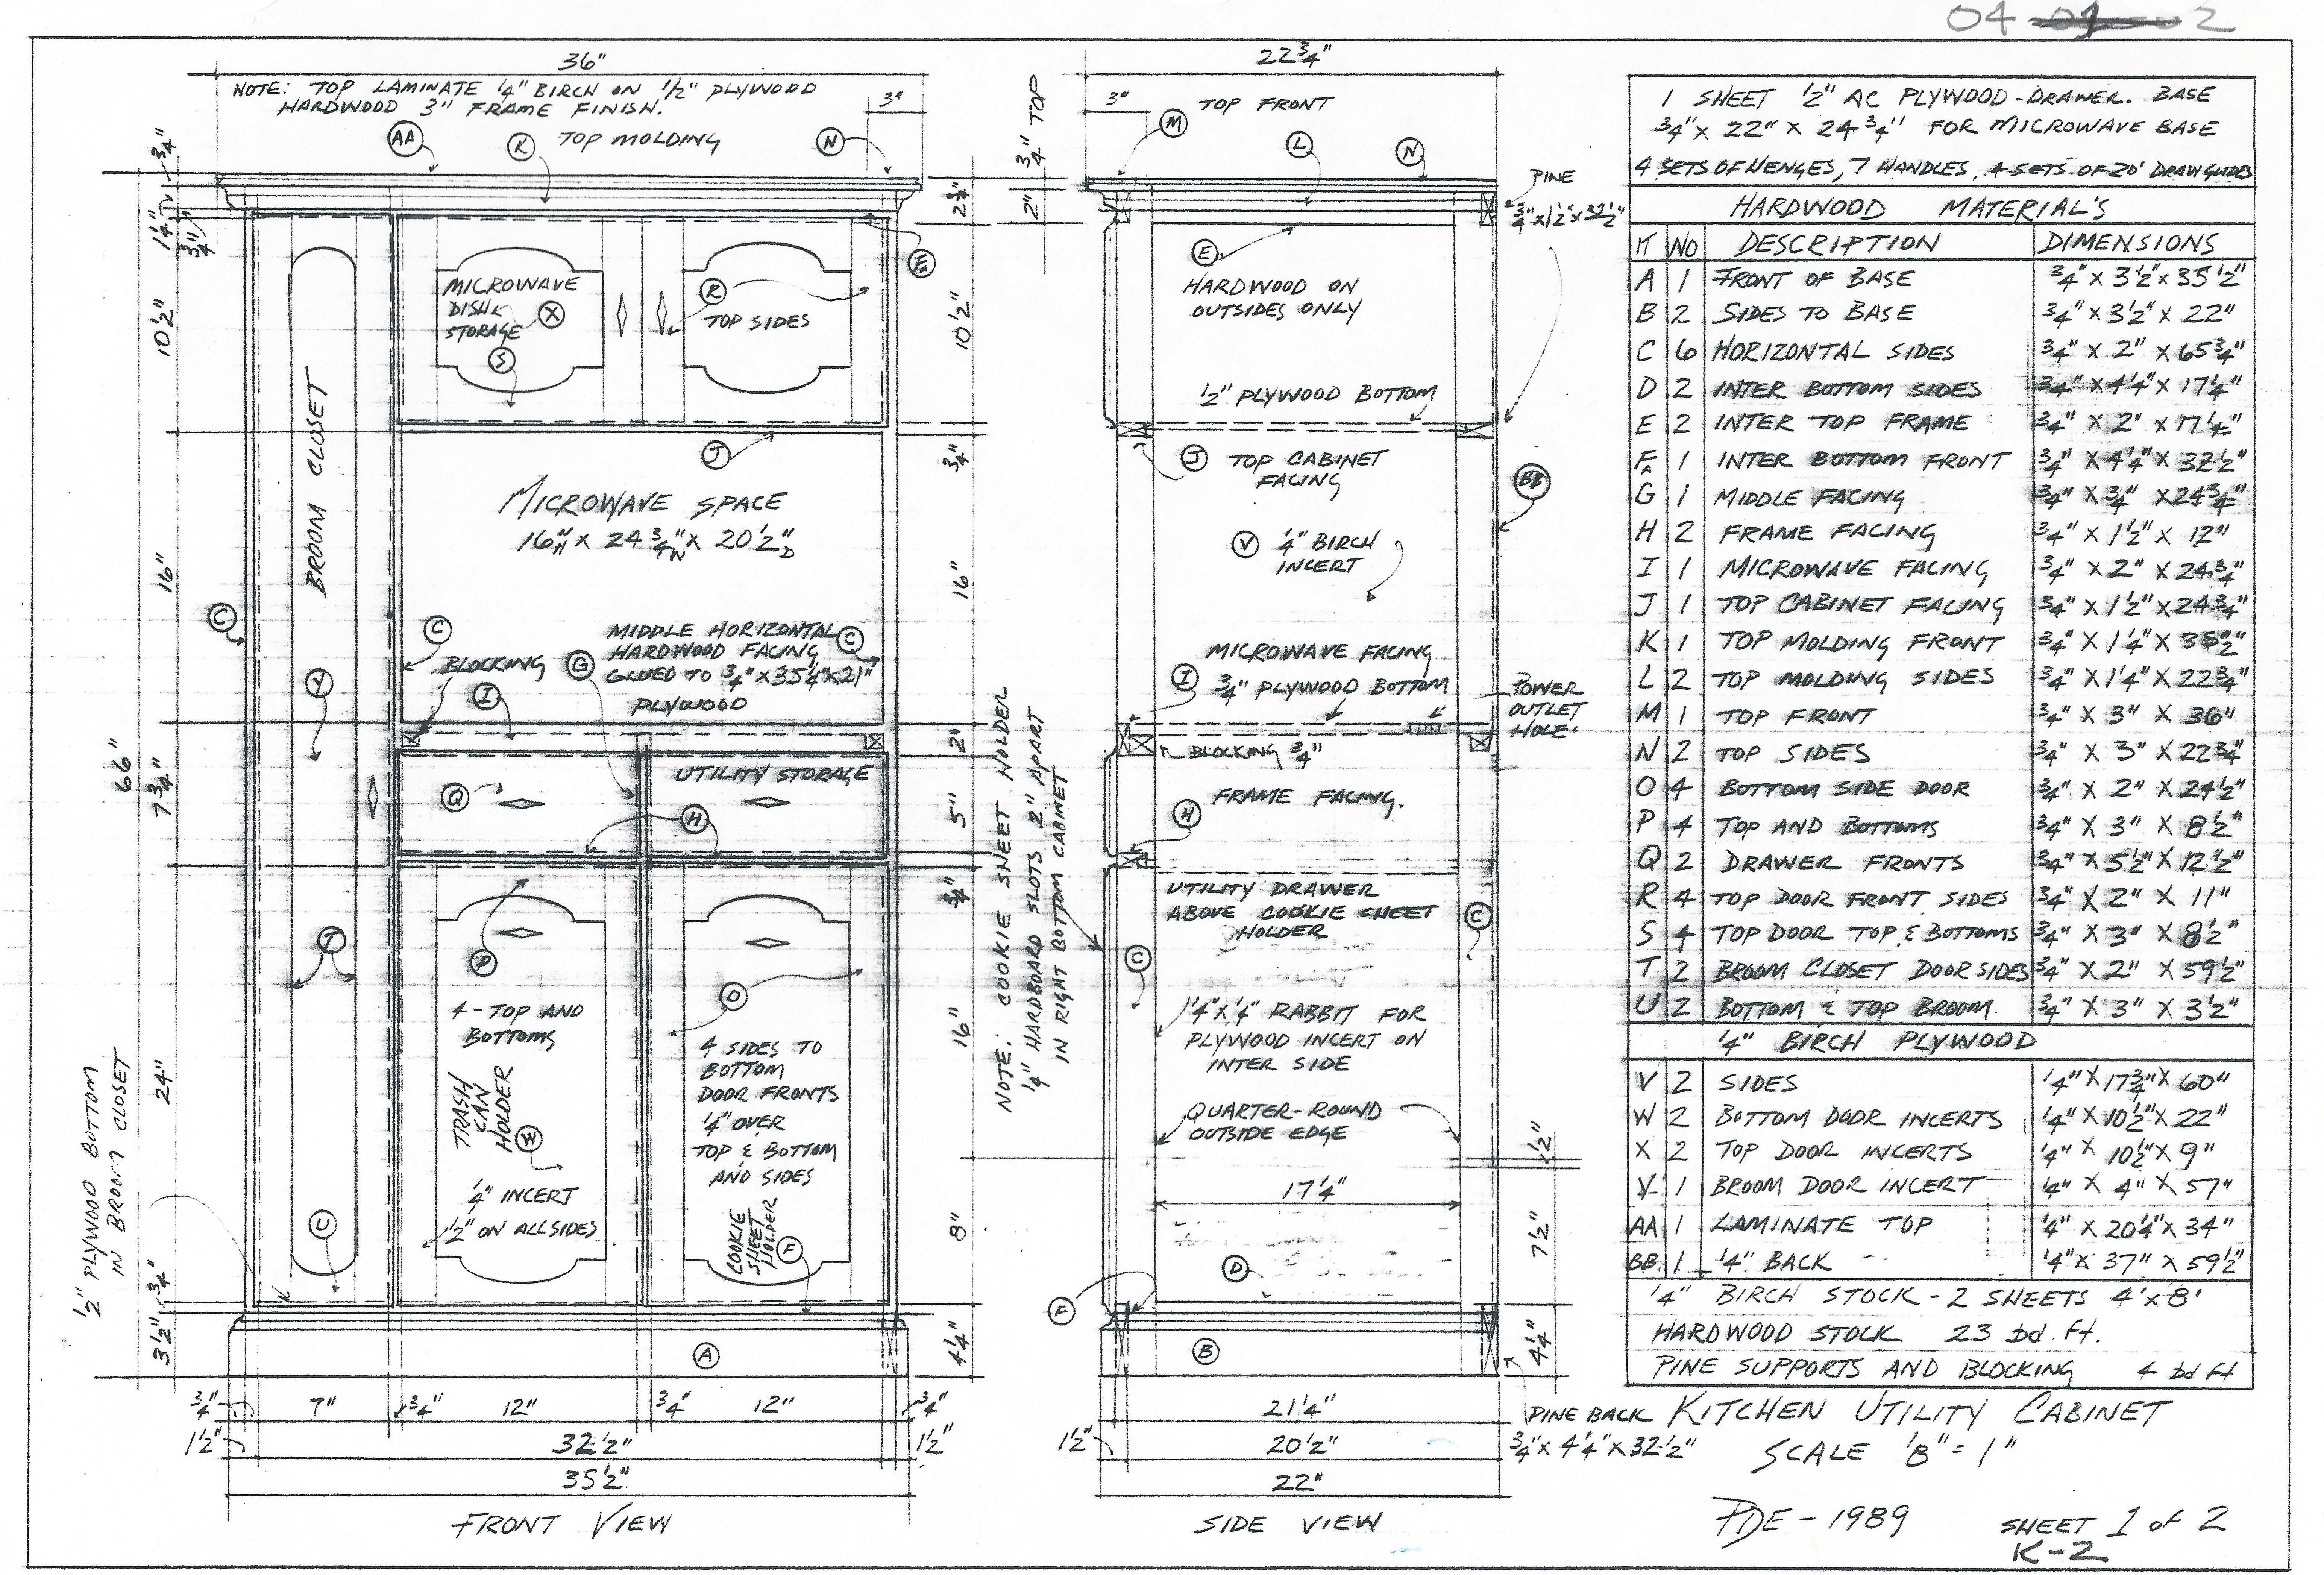 04 02
36"
NOTE: TOP LAMINATE 1/4" BIRCH ON 1/2" PLYWOOD
HARDWOOD 3" FRAME FINISH.
3"
AA
K
TOP MOLDING
N
3/4"
1 1/4"
3/4"
10 1/2"
16"
66"
7 3/4"
24"
3/4"
3 1/2"
1/2" PLYWOOD BOTTOM
IN BROOM CLOSET
BROOM CLOSET
MICROWAVE
DISH &
STORAGE
X
S
R
TOP SIDES
J
MICROWAVE SPACE
16"H X 24 3/4"W X 20 1/2"D
C
C
BLOCKING
I
G
MIDDLE HORIZONTAL
HARDWOOD FACING
GLUED TO 3/4" X 35 1/4" X 21"
PLYWOOD
C
Y
Q
UTILITY STORAGE
H
T
P
4 - TOP AND
BOTTOMS
TRASH
CAN
HOLDER
W
1/4" INCERT
1/2" ON ALL SIDES
O
4 SIDES TO
BOTTOM
DOOR FRONTS
1/4" OVER
TOP & BOTTOM
AND SIDES
COOKIE
SHEET
HOLDER
F
A
2 3/4"
10 1/2"
3/4"
16"
2"
5"
3/4"
16"
8"
4 1/4"
3/4"
7"
3/4"
12"
3/4"
12"
3/4"
1 1/2"
32 1/2"
1 1/2"
35 1/2"
FRONT VIEW
NOTE: COOKIE SHEET HOLDER
1/4" HARDBOARD SLOTS 2" APART
IN RIGHT BOTTOM CABINET
22 3/4"
3/4" TOP
2"
3"
M
TOP FRONT
L
N
PINE
3/4" X 1 1/2" X 32 1/2"
E
HARDWOOD ON
OUTSIDES ONLY
1/2" PLYWOOD BOTTOM
J
TOP CABINET
FACING
BB
V
1/4" BIRCH
INCERT
MICROWAVE FACING
I
3/4" PLYWOOD BOTTOM
POWER
OUTLET
HOLE.
BLOCKING 3/4"
H
FRAME FACING.
UTILITY DRAWER
ABOVE COOKIE SHEET
HOLDER
C
C
1/4" X 1/4" RABBIT FOR
PLYWOOD INCERT ON
INTER SIDE
QUARTER-ROUND
OUTSIDE EDGE
1/2"
17 1/4"
7 1/2"
D
F
B
4 1/4"
21 1/4"
1 1/2"
20 1/2"
22"
SIDE VIEW
PINE BACK
3/4" X 4 1/4" X 32 1/2"
1 SHEET 1/2" AC PLYWOOD-DRAWER. BASE
3/4" X 22" X 24 3/4" FOR MICROWAVE BASE
4 SETS OF HENGES, 7 HANDLES, 4 SETS OF 20" DRAW GLIDES
HARDWOOD MATERIAL'S
IT NO DESCRIPTION DIMENSIONS
A 1 FRONT OF BASE 3/4" X 3 1/2" X 35 1/2"
B 2 SIDES TO BASE 3/4" X 3 1/2" X 22"
C 6 HORIZONTAL SIDES 3/4" X 2" X 65 3/4"
D 2 INTER BOTTOM SIDES 3/4" X 4 1/4" X 17 1/4"
E 2 INTER TOP FRAME 3/4" X 2" X 17 1/4"
F 1 INTER BOTTOM FRONT 3/4" X 4 1/4" X 32 1/2"
G 1 MIDDLE FACING 3/4" X 3/4" X 24 3/4"
H 2 FRAME FACING 3/4" X 1 1/2" X 12"
I 1 MICROWAVE FACING 3/4" X 2" X 24 3/4"
J 1 TOP CABINET FACING 3/4" X 1 1/2" X 24 3/4"
K 1 TOP MOLDING FRONT 3/4" X 1 1/4" X 35 1/2"
L 2 TOP MOLDING SIDES 3/4" X 1 1/4" X 22 3/4"
M 1 TOP FRONT 3/4" X 3" X 36"
N 2 TOP SIDES 3/4" X 3" X 22 3/4"
O 4 BOTTOM SIDE DOOR 3/4" X 2" X 24 1/2"
P 4 TOP AND BOTTOMS 3/4" X 3" X 8 1/2"
Q 2 DRAWER FRONTS 3/4" X 5 1/2" X 12 1/2"
R 4 TOP DOOR FRONT SIDES 3/4" X 2" X 11"
S 4 TOP DOOR TOP & BOTTOMS 3/4" X 3" X 8 1/2"
T 2 BROOM CLOSET DOOR SIDES 3/4" X 2" X 59 1/2"
U 2 BOTTOM & TOP BROOM. 3/4" X 3" X 3 1/2"
1/4" BIRCH PLYWOOD
V 2 SIDES 1/4" X 17 3/4" X 60"
W 2 BOTTOM DOOR INCERTS 1/4" X 10 1/2" X 22"
X 2 TOP DOOR INCERTS 1/4" X 10 1/2" X 9"
Y 1 BROOM DOOR INCERT 1/4" X 4" X 57"
AA 1 LAMINATE TOP 1/4" X 20 1/4" X 34"
BB 1 1/4" BACK 1/4" X 37" X 59 1/2"
1/4" BIRCH STOCK - 2 SHEETS 4' X 8'
HARDWOOD STOCK 23 bd. ft.
PINE SUPPORTS AND BLOCKING 4 bd ft
KITCHEN UTILITY CABINET
SCALE 1/8" = 1"
PDE - 1989
SHEET 1 of 2
K-2